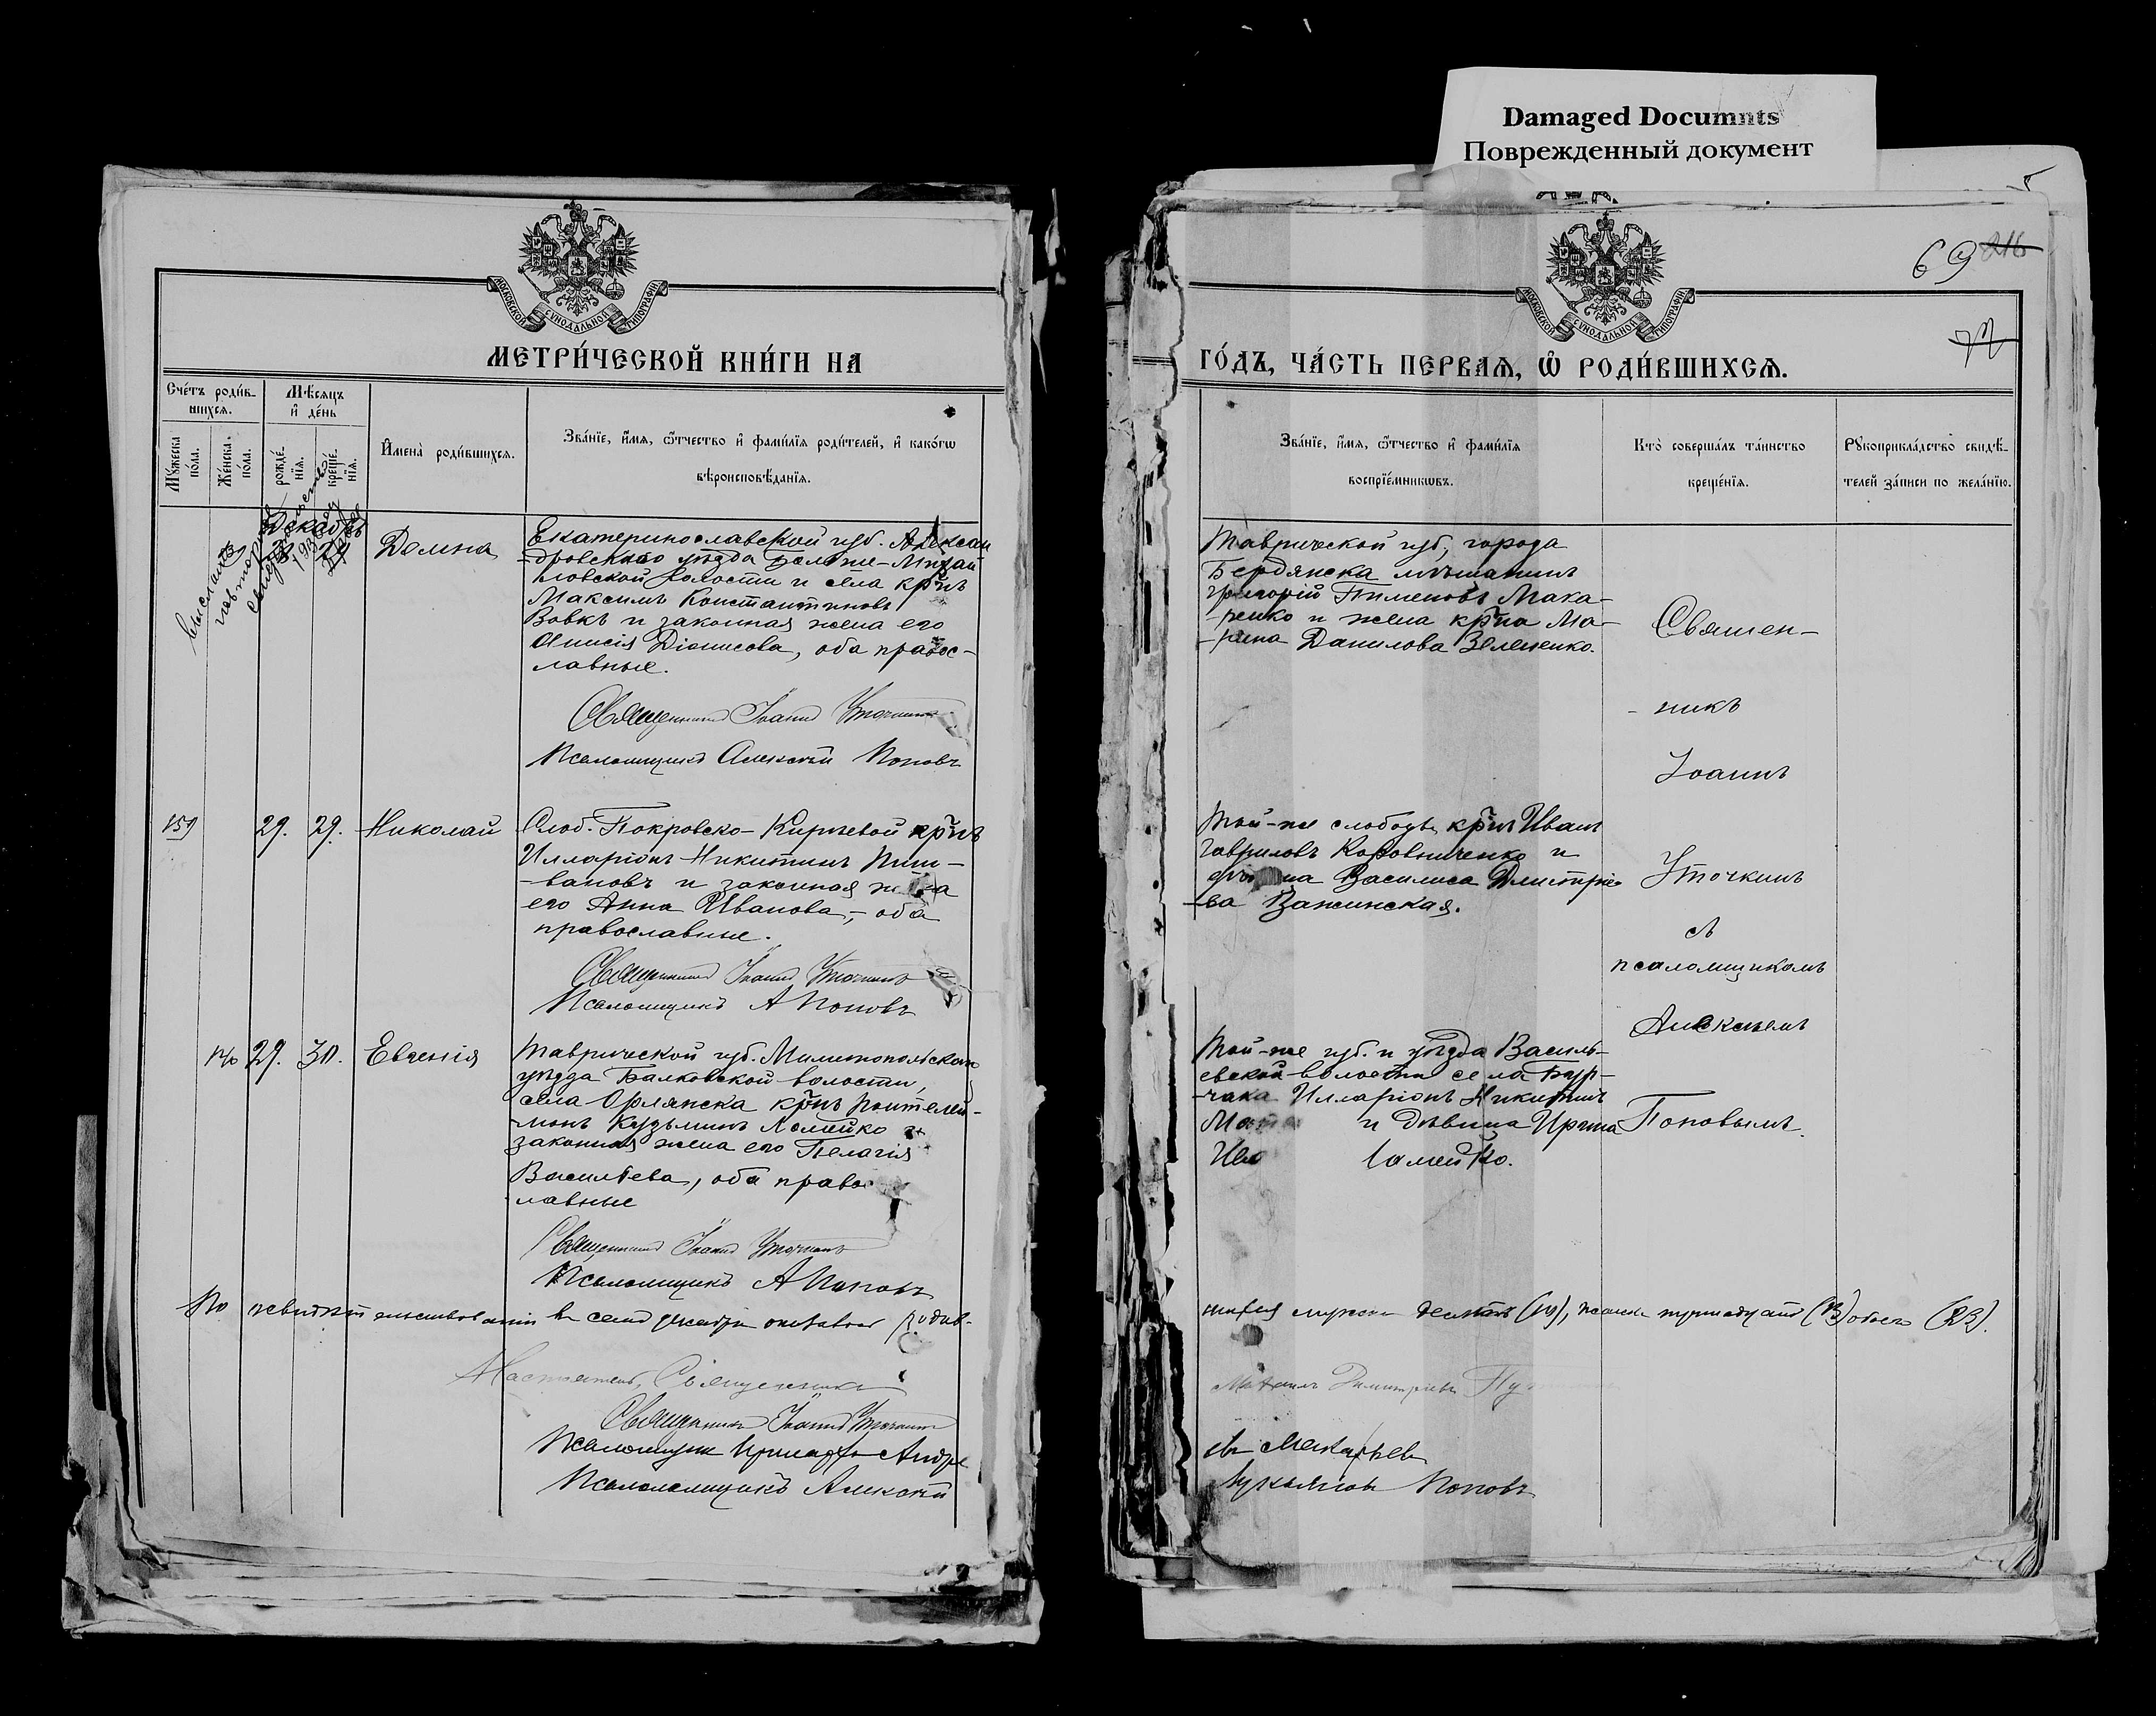 Damaged Documnts
Поврежденный документ
69 216
МОСКОВСКОЙ СѴНОДАЛЬНОЙ ТИПОГРАФІИ
МОСКОВСКОЙ СѴНОДАЛЬНОЙ ТИПОГРАФІИ
МЕТРИ́ЧЕСКОЙ КНИ́ГИ НА
ГО́ДЪ, ЧА́СТЬ ПЕРВАЯ, Ѡ РОДИ́ВШИХСЯ.
Сче́тъ роди́в-
шихся.
Мѣсяцъ
и҆ де́нь
Мꙋжеска
по́ла.
Же́нска.
по́ла.
рожде́-
нїя.
креще́-
нїя.
И҆мена̀ роди́вшихся.
Зва́нїе, и҆́мя, ѻ҆́тчество и҆ фами́лїя роди́телей, и҆ како́гѡ
вѣроисповѣ́данїя.
Зва́нїе, и҆́мя, ѻ҆́тчество и҆ фами́лїя
воспрїе́мникѡвъ.
Кто̀ соверша́лъ та́инство
креще́нїя.
Рꙋкоприкла́дство свидѣ́-
телей за́писи по жела́нїю.
Декабрь
Домна
Екатеринославской губ. Алексан
-дровскаго уѣзда Бѣлоце-Михай
ловской волости и села кр̃нъ
Максимъ Константиновъ
Вовкъ и законная жена его
Анисія Діонисова, оба правос-
лавные.
Священникъ Іоаннъ Уточкинъ
Псаломщикъ Алексѣй Поповъ
Таврической губ, города
Бердянска мѣщанинъ
Григорій Пименовъ Мака-
-ренко и жена кр̃на Ма-
-рина Данилова Зеленко.
Священ-
-никъ
Іоаннъ
Уточкинъ
съ
псаломщикомъ
Алексѣемъ
Поповымъ.
159 29. 29. Николай
Слоб. Покровско-Киріевой кр̃нъ
Илларіонъ Никитинъ
-вановъ и законная жена
его Анна Иванова,- оба
православные.
Священникъ Іоаннъ Уточкинъ
Псаломщикъ А Поповъ
Той-же слободы кр̃нъ Иванъ
Гавриловъ Коровниченко и
Василиса Дмитріе
-ва Важинская.
140 29. 30. Евгенія
Таврической губ. Мелитопольскаго
уѣзда Балковской волости,
села Орлянска кр̃нъ Понтелей-
-монъ Кузьминъ Ломейко и
законная жена его Пелагія
Васильева, оба право
лавные
Священникъ Іоаннъ Уточкинъ
Псаломщикъ А Поповъ
Той-же губ. и уѣзда Василь-
евской волости села Бур-
-чака Илларіонъ Никитинъ
и дѣвица Ирина
Ломейко.
По освидѣтельствованіи въ семъ декабрѣ оказалось родив-
шихся мужска десять (10), женска тринадцать (13) обоего (23).
Настоятель, Священникъ
Михаилъ Димитріевъ
Священникъ Іоаннъ Уточкинъ
Псаломщикъ Андре
евъ Макарьевъ
Псаломщикъ Алексѣй
Лукьяновъ Поповъ